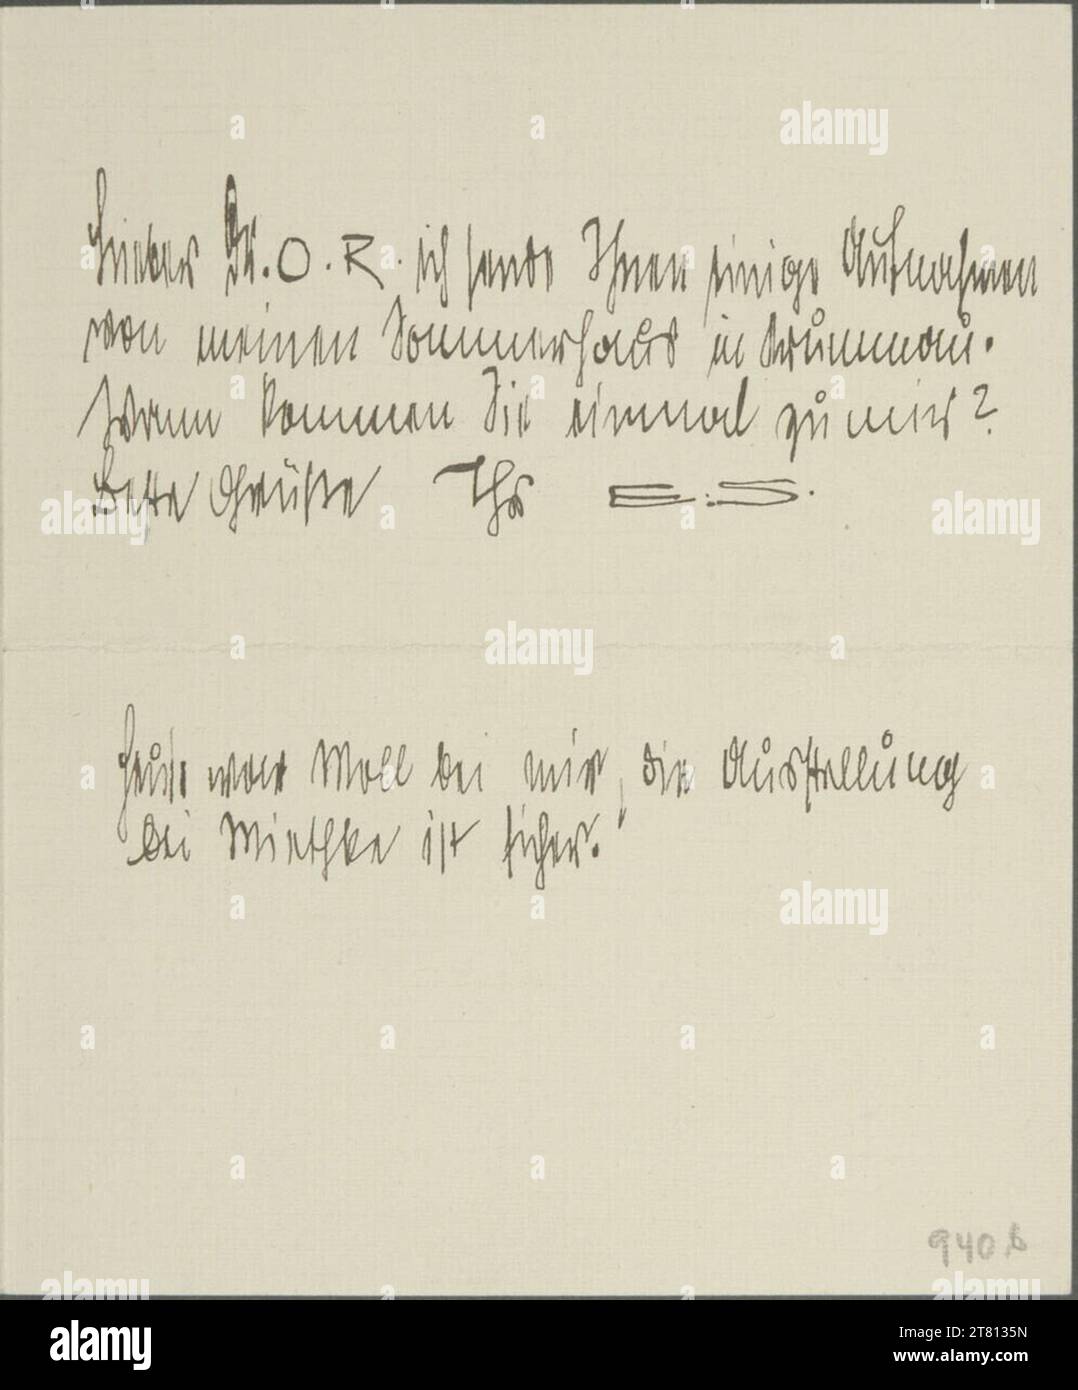 Lieber Dr. O. R. ich sende Ihnen einige Aufnahmen
von meinen Sommerhaus in Krummau.
Wann kommen Sie einmal zu mir?
Beste Grüße Ihr E.S.
Heute war Moll bei mir, die Ausstellung
bei Miethke ist sicher.
940 b
alamy
Image ID: 2T8135N
www.alamy.com